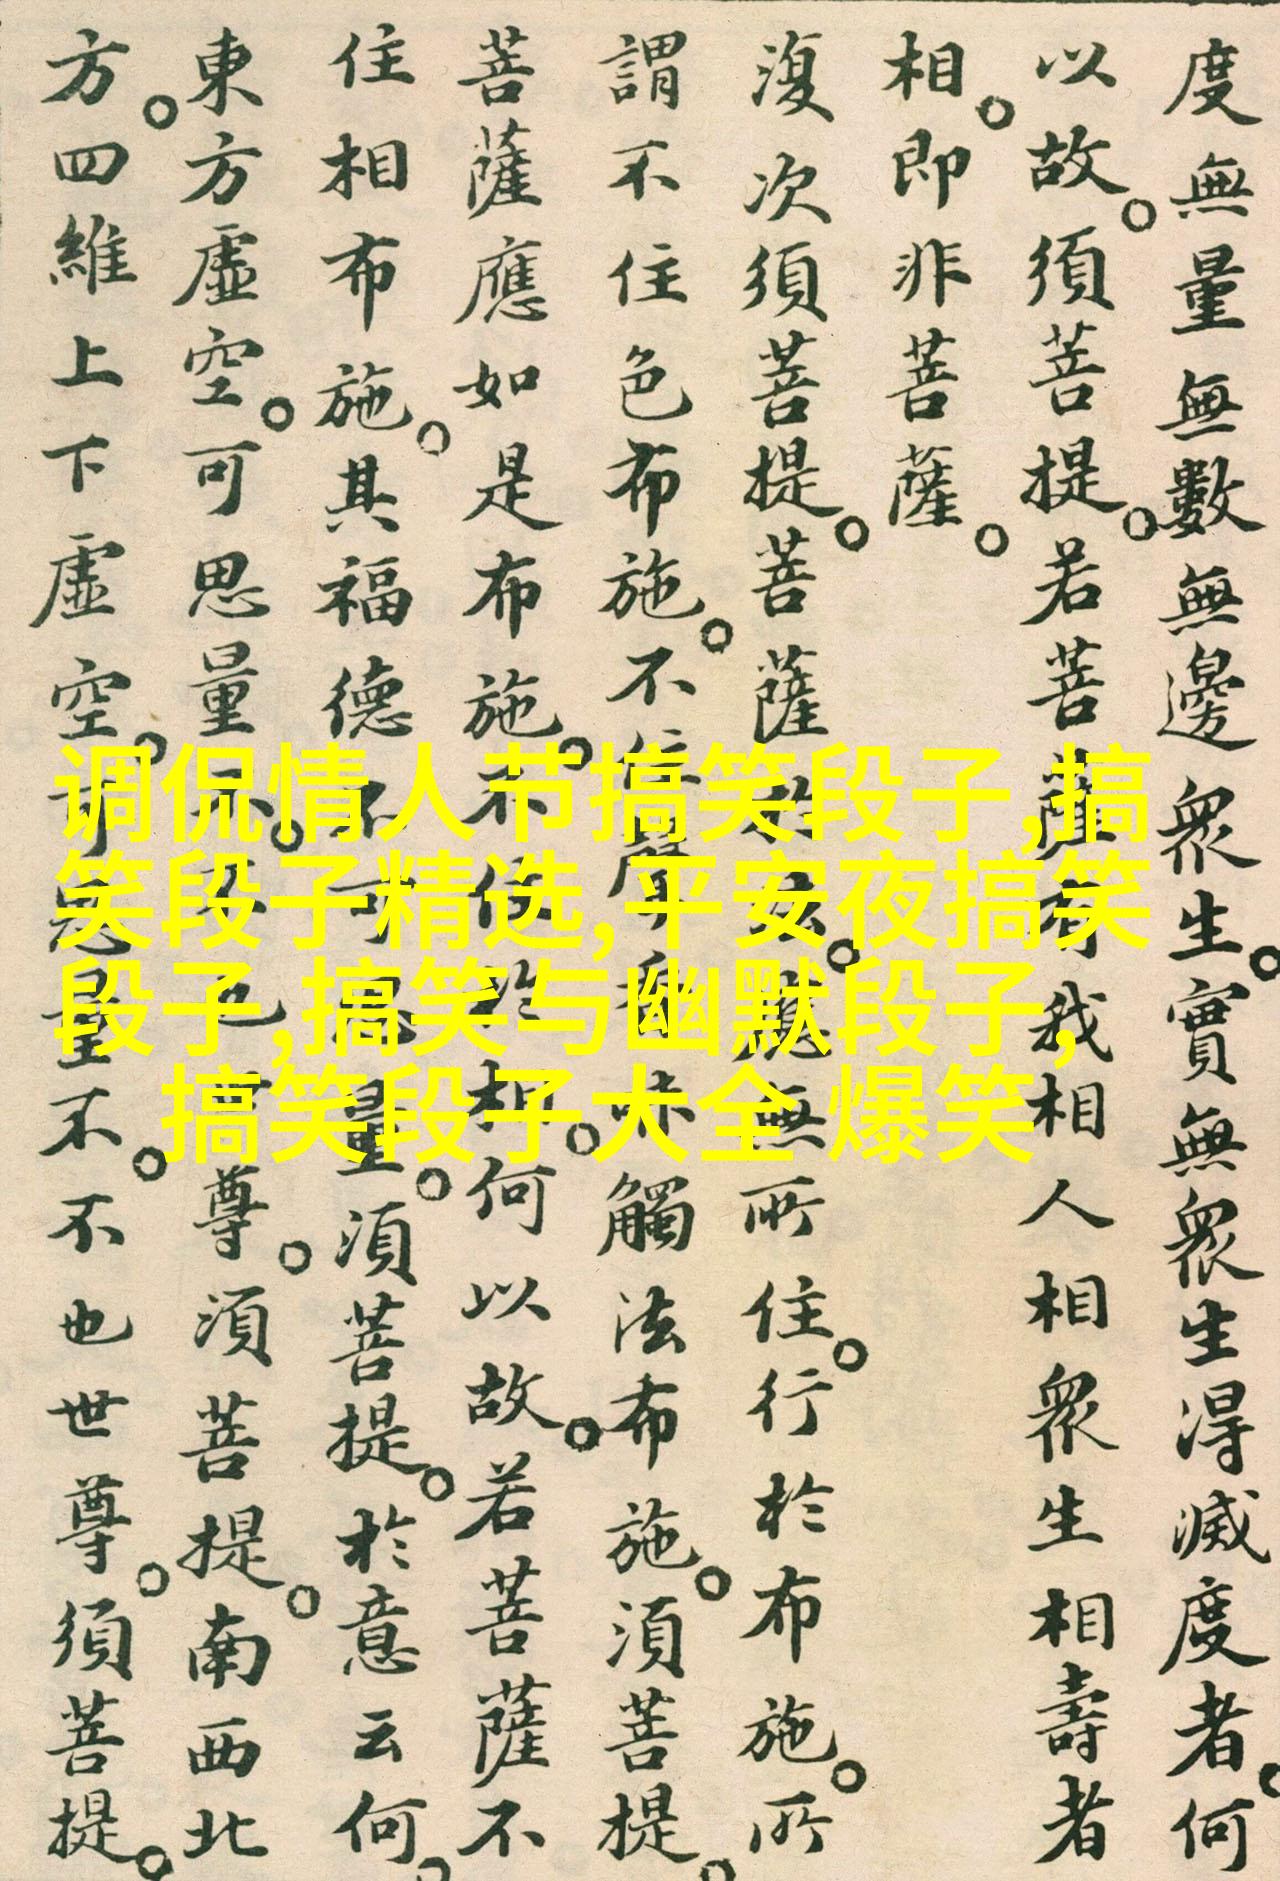 度無量無數無邊眾生。實無眾生得滅度者。何
以故。須菩提。若菩薩有我相人相眾生相壽者
相。即非菩薩。
復次須菩提。菩薩於法。應無所住。行於布施。所
謂不住色布施。不住聲香味觸法布施。須菩提。
菩薩應如是布施。不住於相。何以故。若菩薩不
住相布施。其福德不可思量。須菩提。於意云何。
東方虛空。可思量不。不也世尊。須菩提。南西北
方。四維上下虛空。可思量不。不也世尊。須菩提。
调侃情人节搞笑段子,搞
笑段子精选,平安夜搞笑
段子,搞笑与幽默段子,
搞笑段子大全 爆笑